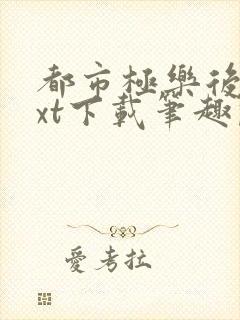 都市極樂後
xt下載筆趣
愛考拉